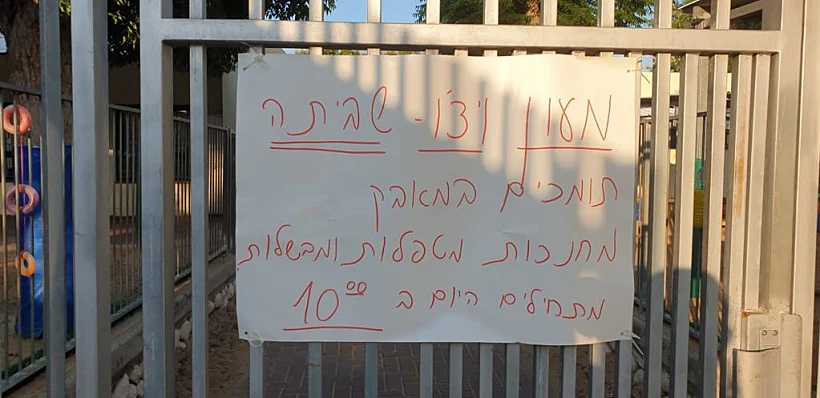 מעון ויצ'ו - שביתה
תומכים במאבק
מחנכות מטפלות ומבשלות
מתחילים היום ב 10⁰⁰